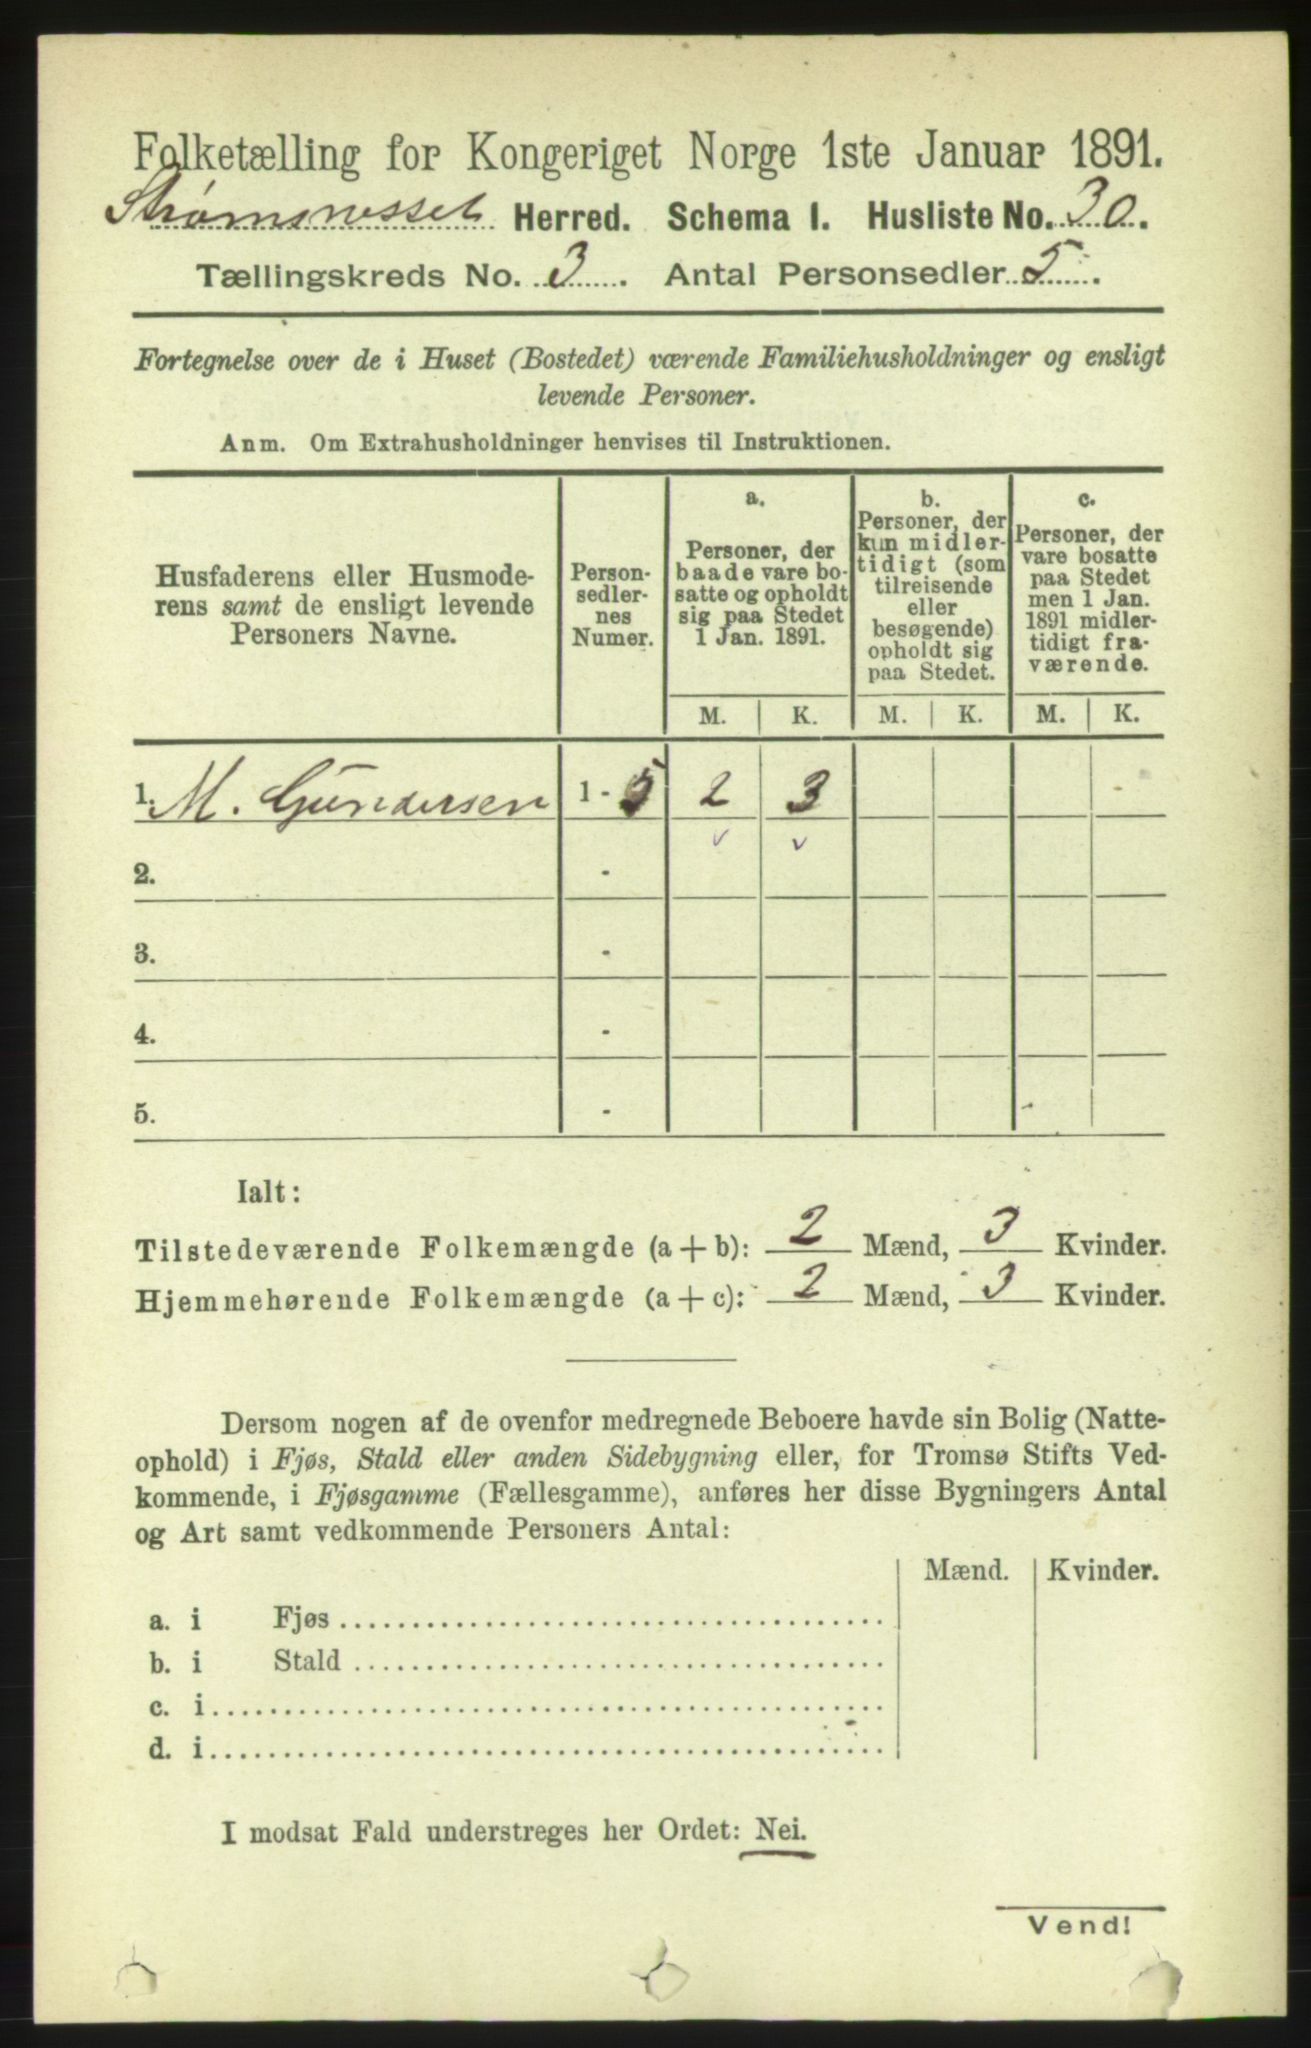 Folketælling for Kongeriget Norge 1ste Januar 1891.
Strømsnesset Herred. Schema I. Husliste No. 30.
Tællingskreds No. 3. Antal Personsedler 5.
Fortegnelse over de i Huset (Bostedet) værende Familiehusholdninger og ensligt
levende Personer.
Anm. Om Extrahusholdninger henvises til Instruktionen.
Husfaderens eller Husmode-
rens samt de ensligt levende
Personers Navne.
Person-
sedler-
nes
Numer.
a.
Personer, der
baade vare bo-
satte og opholdt
sig paa Stedet
1 Jan. 1891.
b.
Personer, der
kun midler-
tidigt (som
tilreisende
eller
besøgende)
opholdt sig
paa Stedet.
c.
Personer, der
vare bosatte
paa Stedet
men 1 Jan.
1891 midler-
tidigt fra-
værende.
M. K. M. K. M. K.
1. M. Gundersen 1 - 5 2 3
2. -
3. -
4. -
5. -
Ialt:
Tilstedeværende Folkemængde (a + b): 2 Mænd, 3 Kvinder.
Hjemmehørende Folkemængde (a + c): 2 Mænd, 3 Kvinder.
Dersom nogen af de ovenfor medregnede Beboere havde sin Bolig (Natte-
ophold) i Fjøs, Stald eller anden Sidebygning eller, for Tromsø Stifts Ved-
kommende, i Fjøsgamme (Fællesgamme), anføres her disse Bygningers Antal
og Art samt vedkommende Personers Antal:
Mænd. Kvinder.
a. i Fjøs
b. i Stald
c. i
d. i
I modsat Fald understreges her Ordet: Nei.
Vend!